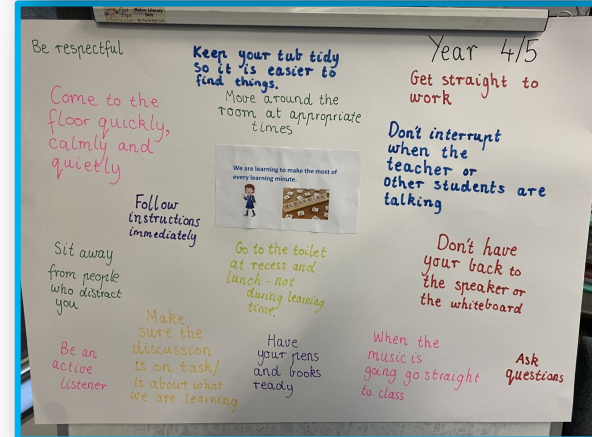 Be respectful
Keep your tub tidy
so it is easier to
find things.
Year 4/5
Get straight to
work
Come to the
floor quickly,
calmly and
quietly
Move around the
room at appropriate
times
Don't interrupt
when the
teacher or
other students are
talking
We are learning to make the most of
every learning minute.
Follow
instructions
immediately
Sit away
from people
who distract
you
Go to the toilet
at recess and
lunch - not
during learning
time.
Don't have
your back to
the speaker or
the whiteboard
Be an
active
listener
Make
sure the
discussion
is on task/
is about what
we are learning
Have
your pens
and books
ready
When the
music is
going go straight
to class
Ask
questions